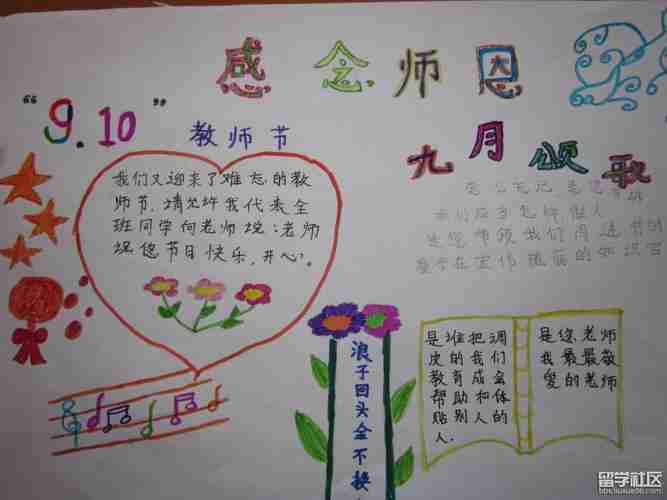 感念师恩
“9.10”
教师节
九月颂歌
我们又迎来了难忘的教
师节,请允许我代表全
班同学向老师说:老师
祝您节日快乐,开心。
怎么忘记 是您
怎样做人
是您带领我们
的知识宫
浪子回头金不换
是谁把调
皮的我们
教育成会
帮助和体
贴别人的
人.
是您,老师
我最最敬
爱的老师
留学社区
bbs.liuxue86.com